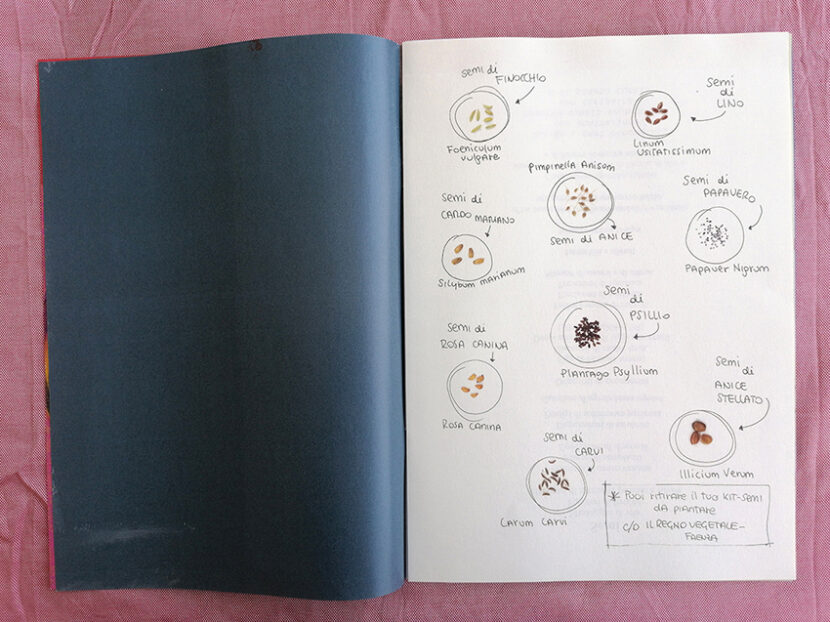 semi di
FINOCCHIO
Foeniculum
vulgare
semi
di
LINO
Linum
Usitatissimum
Pimpinella Anisum
semi di ANICE
semi di
CARDO MARIANO
Silybum marianum
semi di
PAPAVERO
Papaver Nigrum
semi
di
PSILLIO
Plantago Psyllium
semi di
ROSA CANINA
ROSA CANINA
semi
di
ANICE
STELLATO
Illicium Verum
semi di
CARVI
Carum Carvi
* Puoi ritirare il tuo KIT-semi
da piantare
c/o IL REGNO VEGETALE-
FAENZA